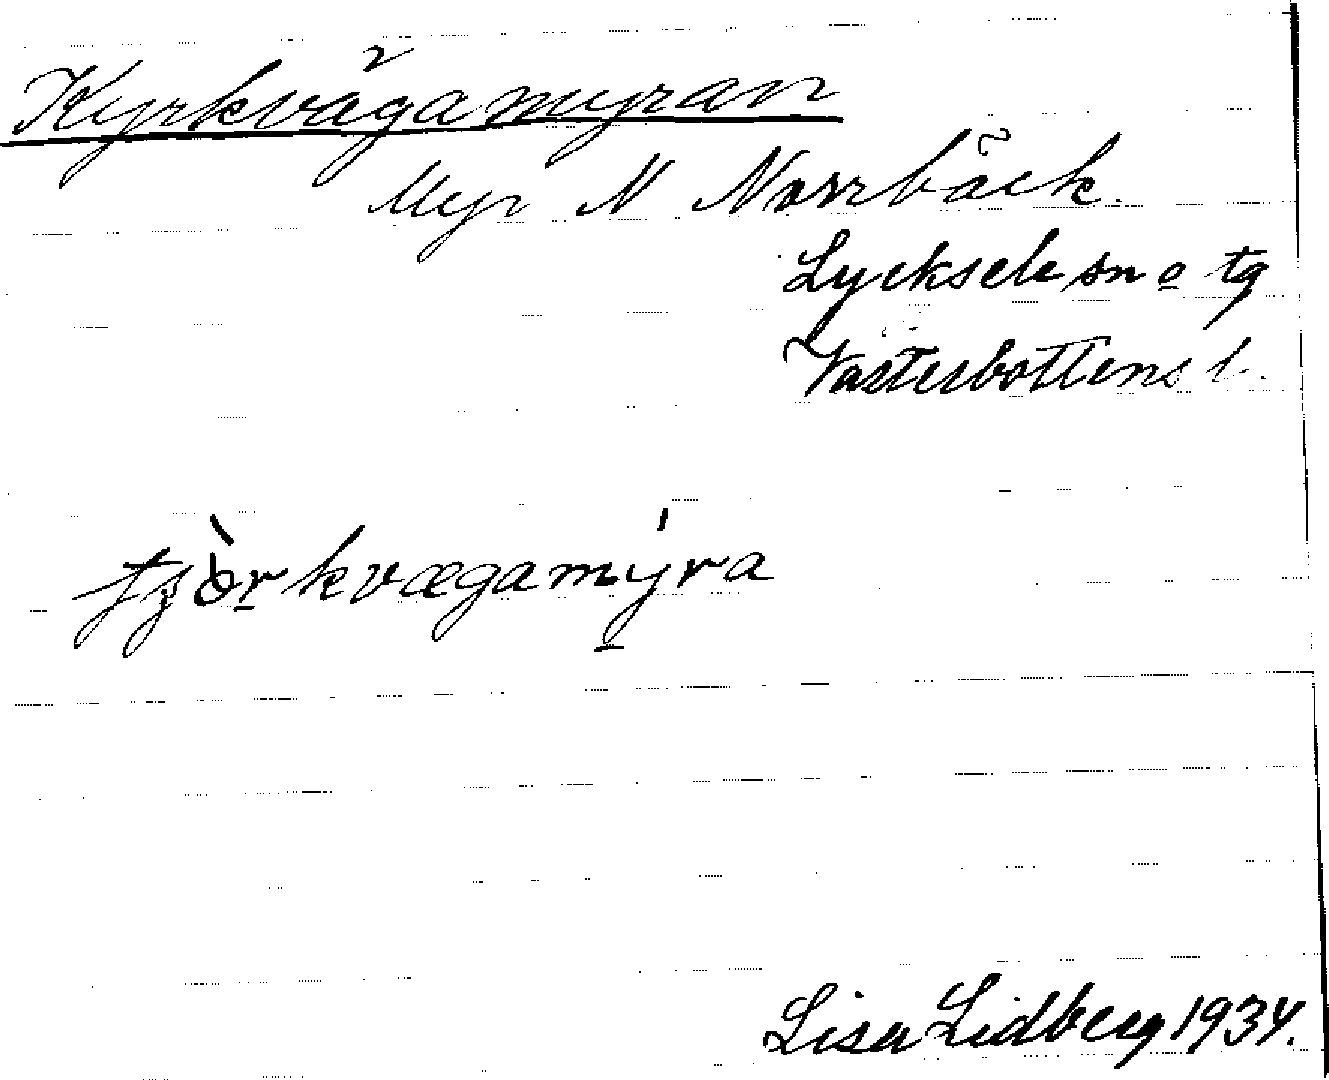 Kyrkvägamyran
Myr N Norrbäck
Lycksele sn o tg
Västerbottens l.
tjòrkvægamýra
Lisa Lidberg 1934.